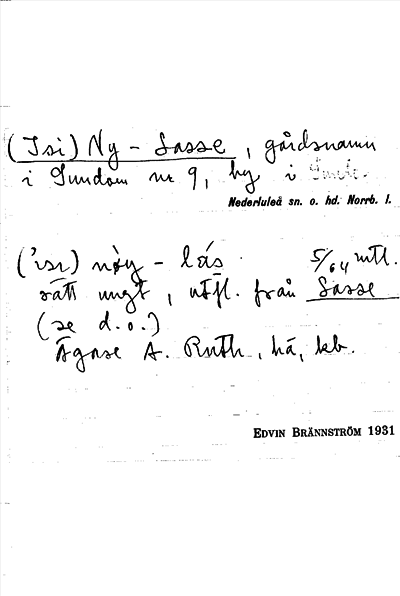 (Isi) Ny - Lasse, gårdsnamn
i Sundom nr 9, by i
Nederluleå sn. o. hd. Norrb. l.
('ısı) nøy - lás 5/64 mtl.
rätt ungt, utfl. från Lasse
(se d.o.)
Ägare A. Ruth, hä, kb.
EDVIN BRÄNNSTRÖM 1931